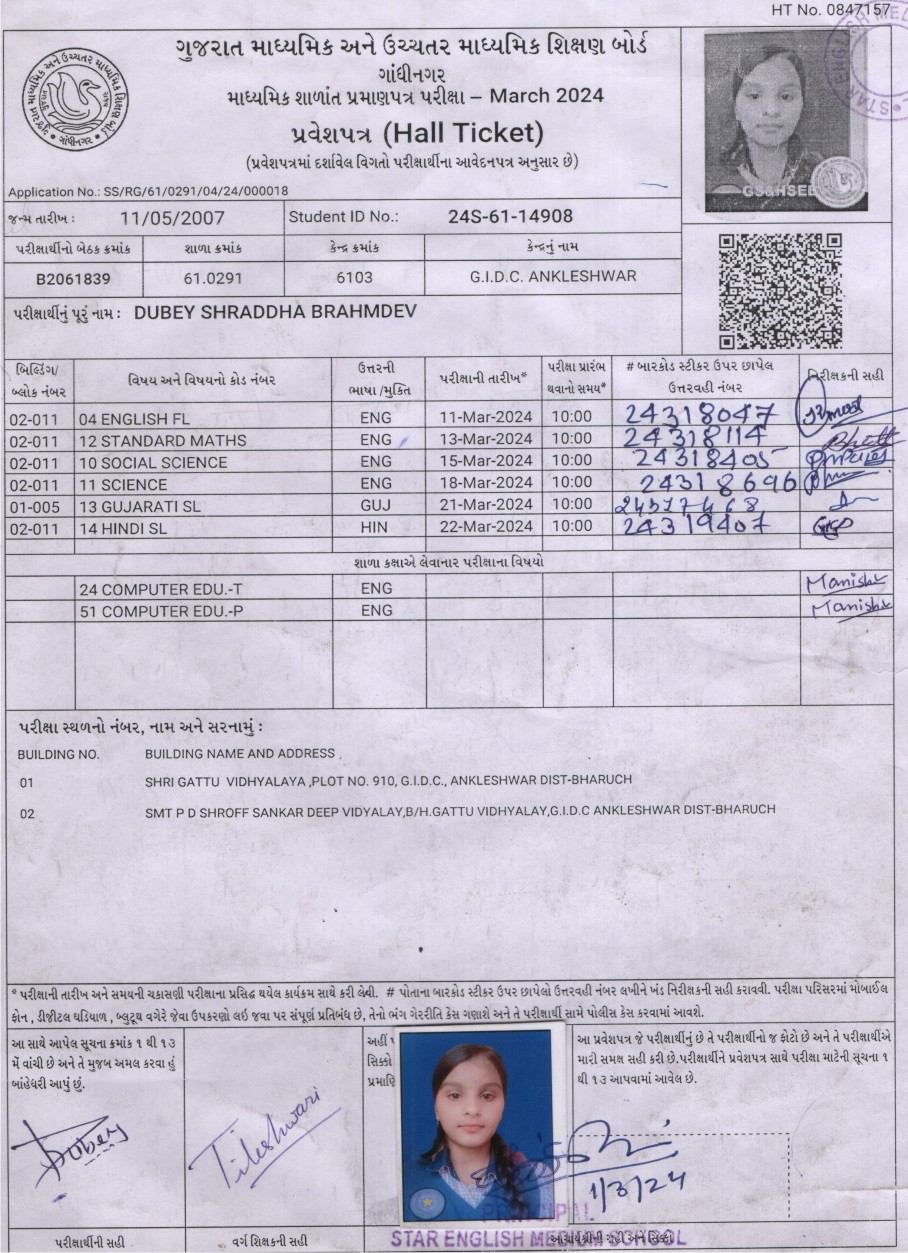 HT No. 0847157
ગુજરાત માધ્યમિક અને ઉચ્ચતર માધ્યમિક શિક્ષણ બોર્ડ
ગાંધીનગર
માધ્યમિક શાળાંત પ્રમાણપત્ર પરીક્ષા – March 2024
પ્રવેશપત્ર (Hall Ticket)
(પ્રવેશપત્રમાં દર્શાવેલ વિગતો પરીક્ષાર્થીના આવેદનપત્ર અનુસાર છે)
GS&HSEB
Application No.: SS/RG/61/0291/04/24/000018
જન્મ તારીખ : 11/05/2007 Student ID No.: 24S-61-14908
પરીક્ષાર્થીનો બેઠક ક્રમાંક શાળા ક્રમાંક કેન્દ્ર ક્રમાંક કેન્દ્રનું નામ
B2061839 61.0291 6103 G.I.D.C. ANKLESHWAR
પરીક્ષાર્થીનું પૂરું નામ : DUBEY SHRADDHA BRAHMDEV
બિલ્ડિંગ/ બ્લોક નંબર વિષય અને વિષયનો કોડ નંબર ઉત્તરની ભાષા /મુક્તિ પરીક્ષાની તારીખ* પરીક્ષા પ્રારંભ થવાનો સમય* # બારકોડ સ્ટીકર ઉપર છાપેલ ઉત્તરવહી નંબર નિરીક્ષકની સહી
02-011 04 ENGLISH FL ENG 11-Mar-2024 10:00 24318047
02-011 12 STANDARD MATHS ENG 13-Mar-2024 10:00 24318114 Bhatt
02-011 10 SOCIAL SCIENCE ENG 15-Mar-2024 10:00 24318405
02-011 11 SCIENCE ENG 18-Mar-2024 10:00 24318696
01-005 13 GUJARATI SL GUJ 21-Mar-2024 10:00 24317468
02-011 14 HINDI SL HIN 22-Mar-2024 10:00 24319407
શાળા કક્ષાએ લેવાનાર પરીક્ષાના વિષયો
24 COMPUTER EDU.-T ENG Manisha
51 COMPUTER EDU.-P ENG Manisha
પરીક્ષા સ્થળનો નંબર, નામ અને સરનામું :
BUILDING NO. BUILDING NAME AND ADDRESS
01 SHRI GATTU VIDHYALAYA ,PLOT NO. 910, G.I.D.C., ANKLESHWAR DIST-BHARUCH
02 SMT P D SHROFF SANKAR DEEP VIDYALAY,B/H.GATTU VIDHYALAY,G.I.D.C ANKLESHWAR DIST-BHARUCH
* પરીક્ષાની તારીખ અને સમયની ચકાસણી પરીક્ષાના પ્રસિદ્ધ થયેલ કાર્યક્રમ સાથે કરી લેવી. # પોતાના બારકોડ સ્ટીકર ઉપર છાપેલો ઉત્તરવહી નંબર લખીને ખંડ નિરીક્ષકની સહી કરાવવી. પરીક્ષા પરિસરમાં મોબાઈલ
ફોન , ડીજીટલ ઘડિયાળ , બ્લુટૂથ વગેરે જેવા ઉપકરણો લઇ જવા પર સંપૂર્ણ પ્રતિબંધ છે, તેનો ભંગ ગેરરીતિ કેસ ગણાશે અને તે પરીક્ષાર્થી સામે પોલીસ કેસ કરવામાં આવશે.
આ સાથે આપેલ સૂચના ક્રમાંક ૧ થી ૧૩
મેં વાંચી છે અને તે મુજબ અમલ કરવા હું
બાંહેધરી આપું છું.
અહીં
સિક્કો
પ્રમાણિ
આ પ્રવેશપત્ર જે પરીક્ષાર્થીનું છે તે પરીક્ષાર્થીનો જ ફોટો છે અને તે પરીક્ષાર્થીએ
મારી સમક્ષ સહી કરી છે.પરીક્ષાર્થીને પ્રવેશપત્ર સાથે પરીક્ષા માટેની સૂચના ૧
થી ૧૩ આપવામાં આવેલ છે.
Dubey
Tileshwari
1/3/24
PRINCIPAL
STAR ENGLISH MEDIUM SCHOOL
પરીક્ષાર્થીની સહી વર્ગ શિક્ષકની સહી